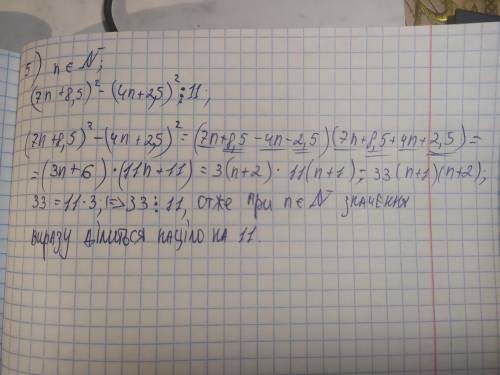 5) n ∈ N;
(7n+8,5)² - (4n+2,5)² ⋮ 11;
(7n+8,5)² - (4n+2,5)² = (7n+8,5 - 4n - 2,5)(7n+8,5+4n+2,5) =
= (3n+6) · (11n+11) = 3(n+2) · 11(n+1) = 33(n+1)(n+2);
33 = 11·3, => 33 ⋮ 11, отже при n ∈ N значення
виразу ділиться націло на 11.